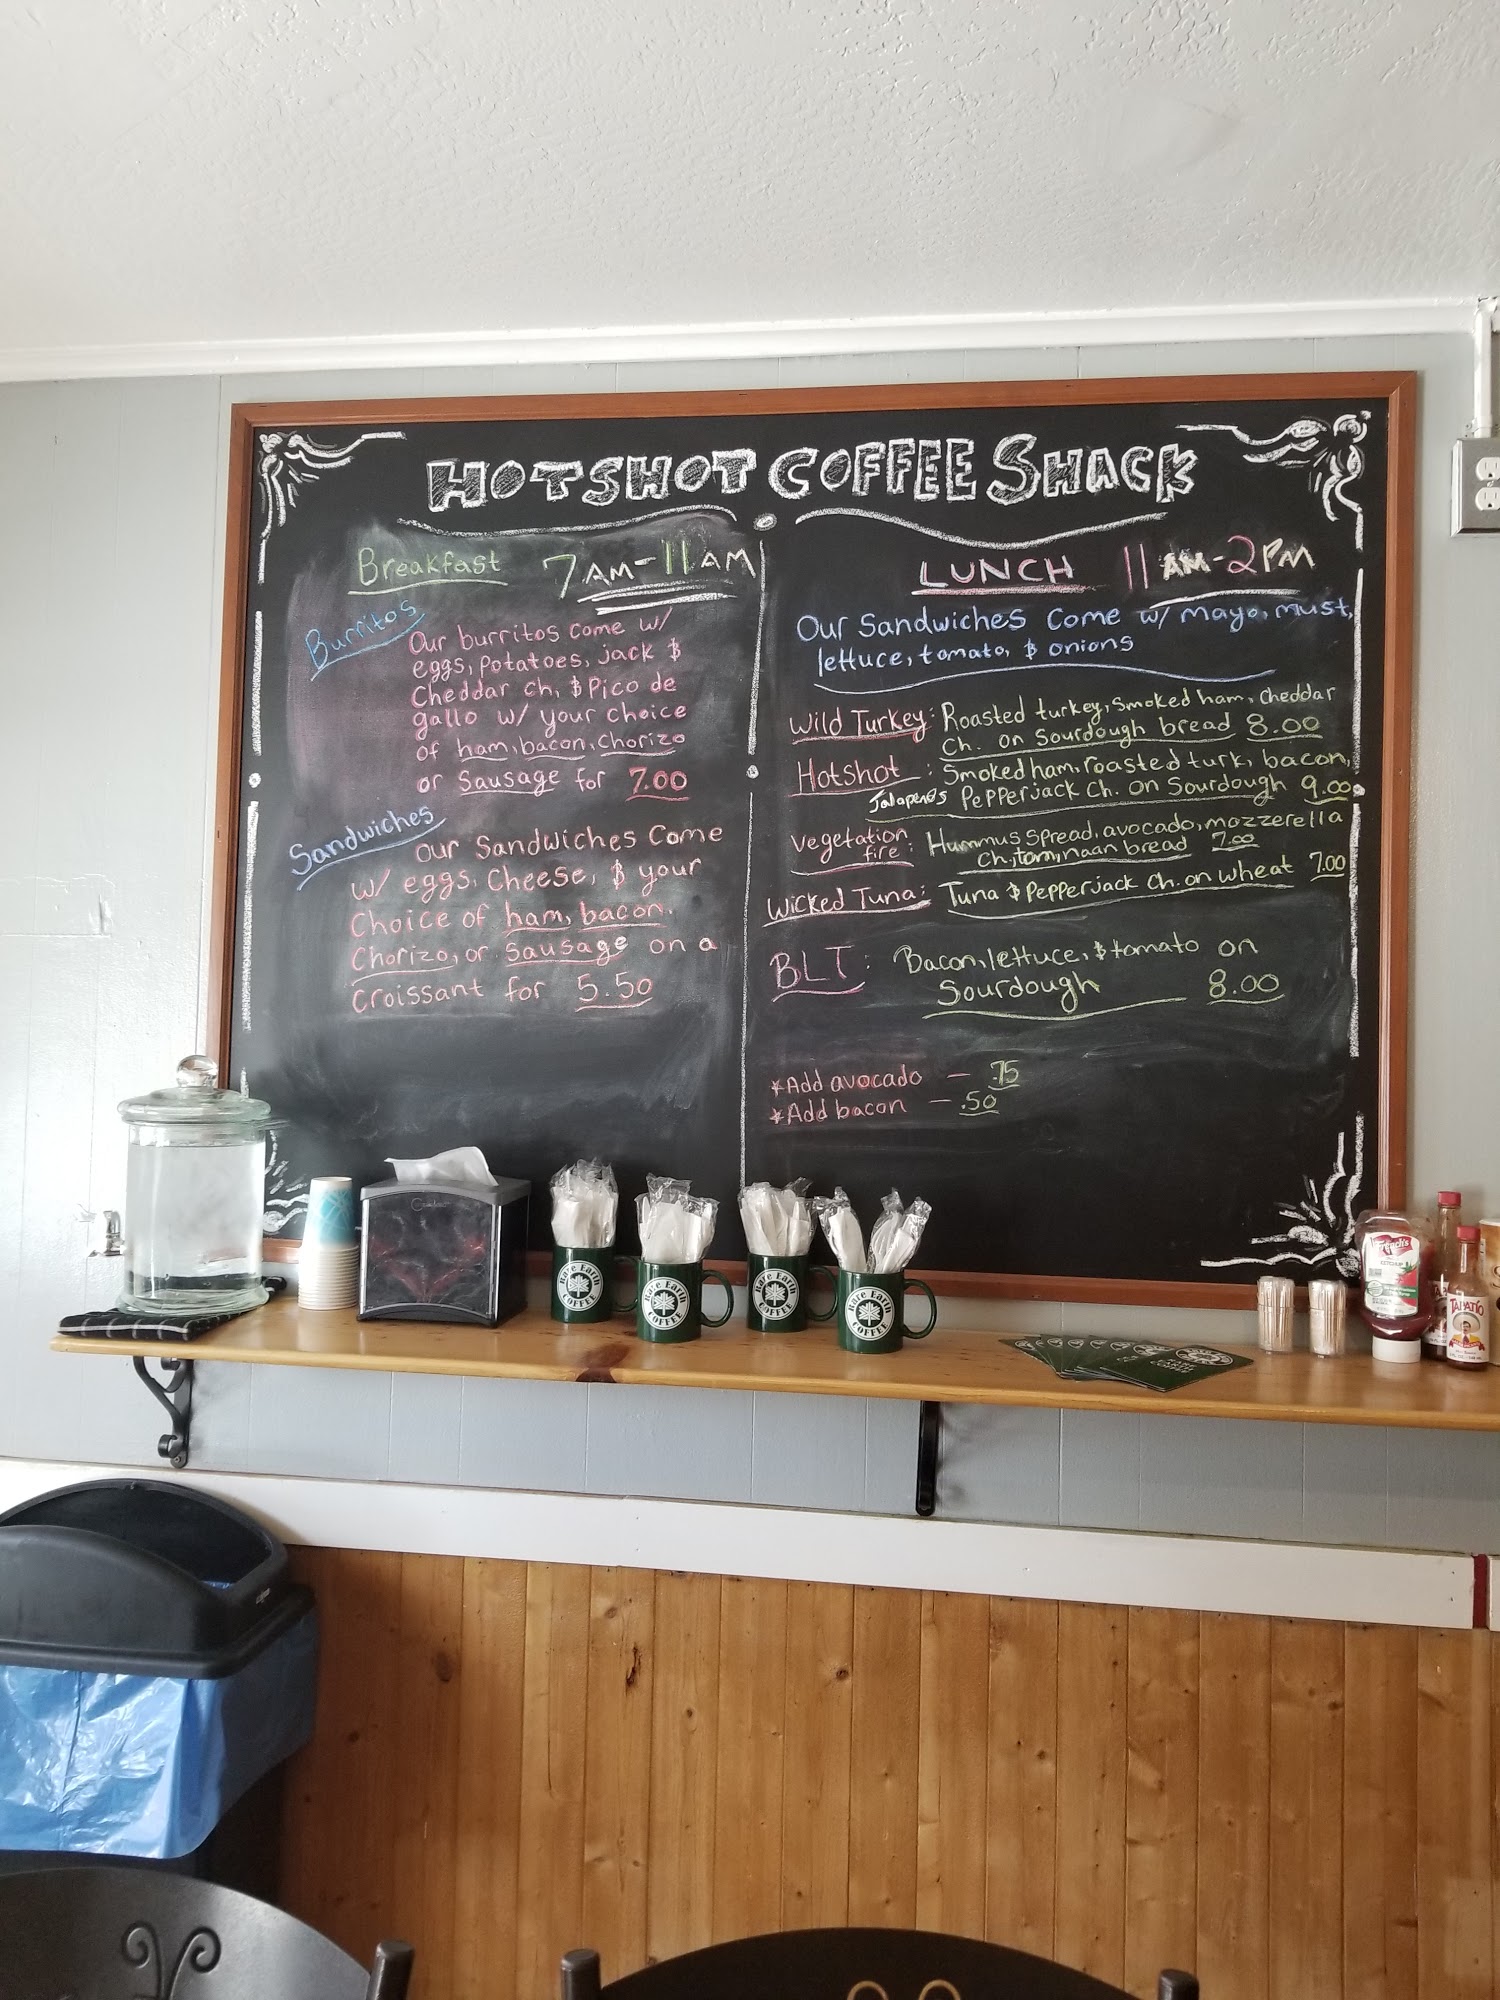 HOTSHOT COFFEE SHACK
Breakfast 7AM-11AM
Burritos
Our burritos come w/
eggs, potatoes, jack &
Cheddar ch, & Pico de
gallo w/ your choice
of ham, bacon, chorizo
or Sausage for 7.00
Sandwiches
Our Sandwiches Come
w/ eggs, Cheese, & your
Choice of ham, bacon,
Chorizo, or Sausage on a
Croissant for 5.50
LUNCH 11AM-2PM
Our Sandwiches Come w/ mayo, must,
lettuce, tomato, & onions
Wild Turkey: Roasted turkey, Smoked ham, cheddar
Ch. on Sourdough bread 8.00
Hotshot : Smoked ham, roasted turk, bacon,
Jalapeno's Pepperjack Ch. on Sourdough 9.00
Vegetation Hummus Spread, avocado, mozzerella
fire: Ch, tom, naan bread 7.00
Wicked Tuna: Tuna & Pepperjack Ch. on wheat 7.00
BLT: Bacon, lettuce, & tomato on
Sourdough 8.00
*Add avocado - .75
*Add bacon - .50
Rare Earth
COFFEE
Rare Earth
COFFEE
Rare Earth
COFFEE
Rare Earth
COFFEE
French's
KETCHUP
TAPATIO